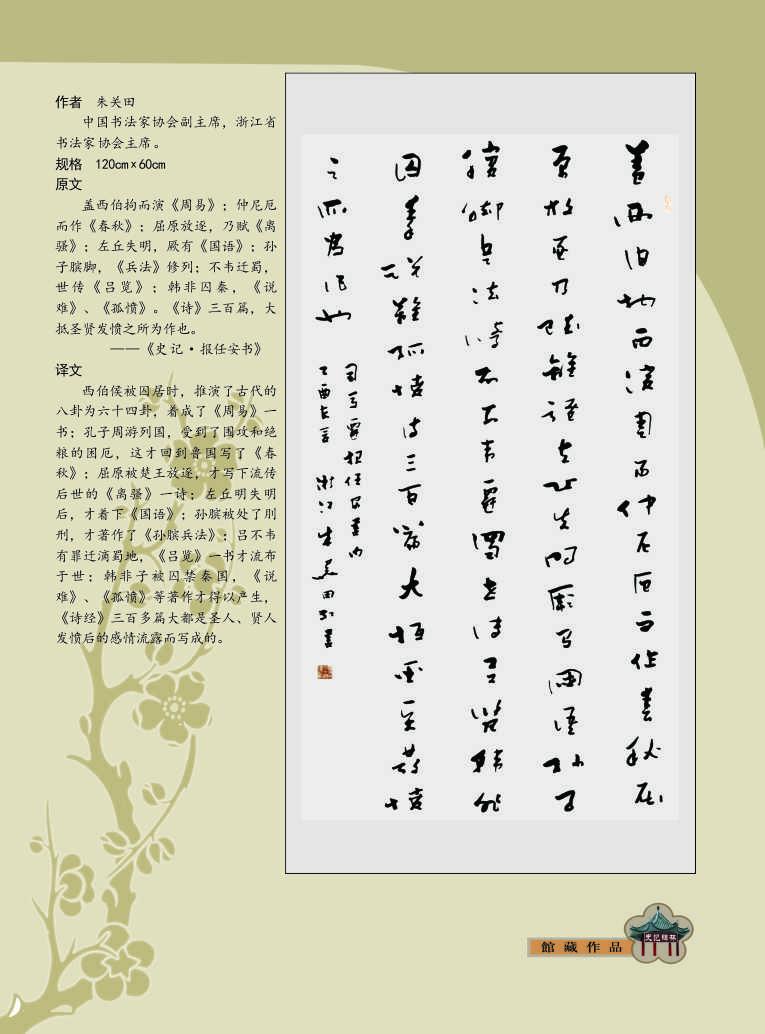 作者 朱关田
中国书法家协会副主席，浙江省
书法家协会主席。
规格 120cm×60cm
原文
盖西伯拘而演《周易》；仲尼厄
而作《春秋》；屈原放逐，乃赋《离
骚》；左丘失明，厥有《国语》；孙
子膑脚，《兵法》修列；不韦迁蜀，
世传《吕览》；韩非囚秦，《说
难》、《孤愤》。《诗》三百篇，大
抵圣贤发愤之所为作也。
——《史记·报任安书》
译文
西伯侯被囚居时，推演了古代的
八卦为六十四卦，着成了《周易》一
书；孔子周游列国，受到了围攻和绝
粮的困厄，这才回到鲁国写了《春
秋》；屈原被楚王放逐，才写下流传
后世的《离骚》一诗；左丘明失明
后，才着下《国语》；孙膑被处了刖
刑，才著作了《孙膑兵法》；吕不韦
有罪迁滴蜀地，《吕览》一书才流布
于世；韩非子被囚禁秦国，《说
难》、《孤愤》等著作才得以产生，
《诗经》三百多篇大都是圣人、贤人
发愤后的感情流露而写成的。
蓋西伯拘而演周易仲尼厄而作春秋屈
原放逐乃賦離騷左丘失明厥有國語孫子
臏腳兵法脩列不韋遷蜀世傳吕覽韓非
囚秦說難孤憤詩三百篇大抵聖賢發憤
之所為作也
司马遷報任安書内
館藏作品
史记碑林